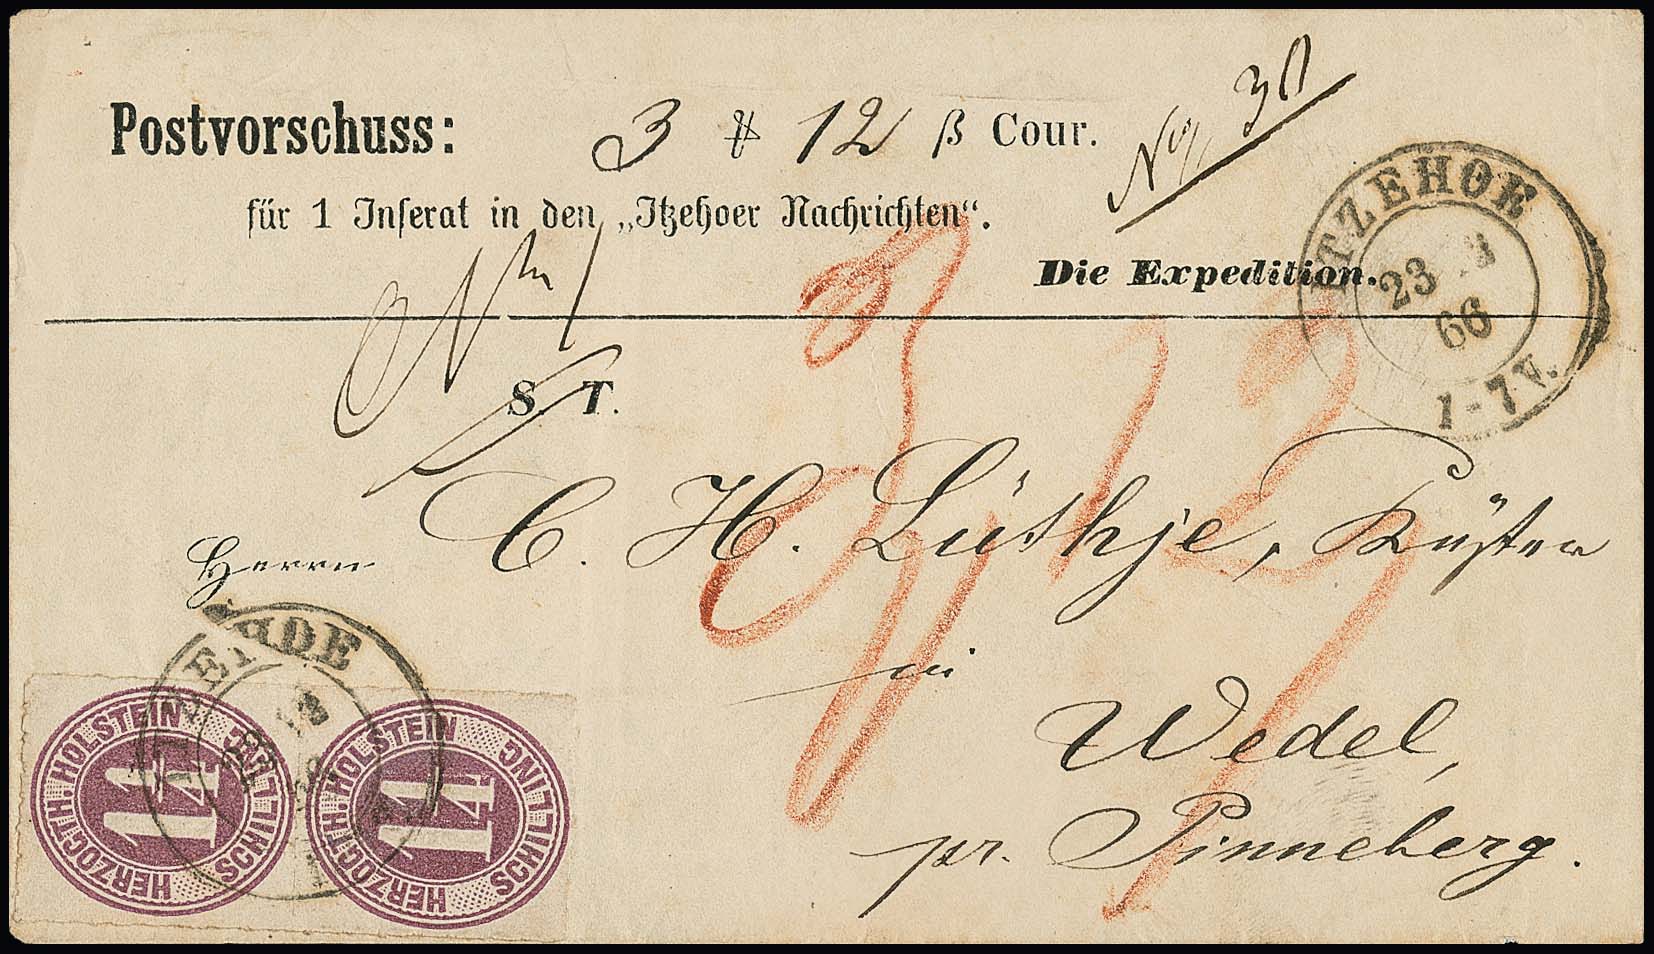 Postvorschuss: 3 ₰ 12 β Cour.
No. 30
für 1 Inserat in den „Itzehoer Nachrichten“.
Die Expedition.
ITZEHOE
23 12
66
1-7 V.
S. T.
Herrn C. H. Lüthje, Küster
in
Wedel,
pr. Pinneberg.
3 12
HERZOGTH. HOLSTEIN
1¼
SCHILLING
HERZOGTH. HOLSTEIN
1¼
SCHILLING